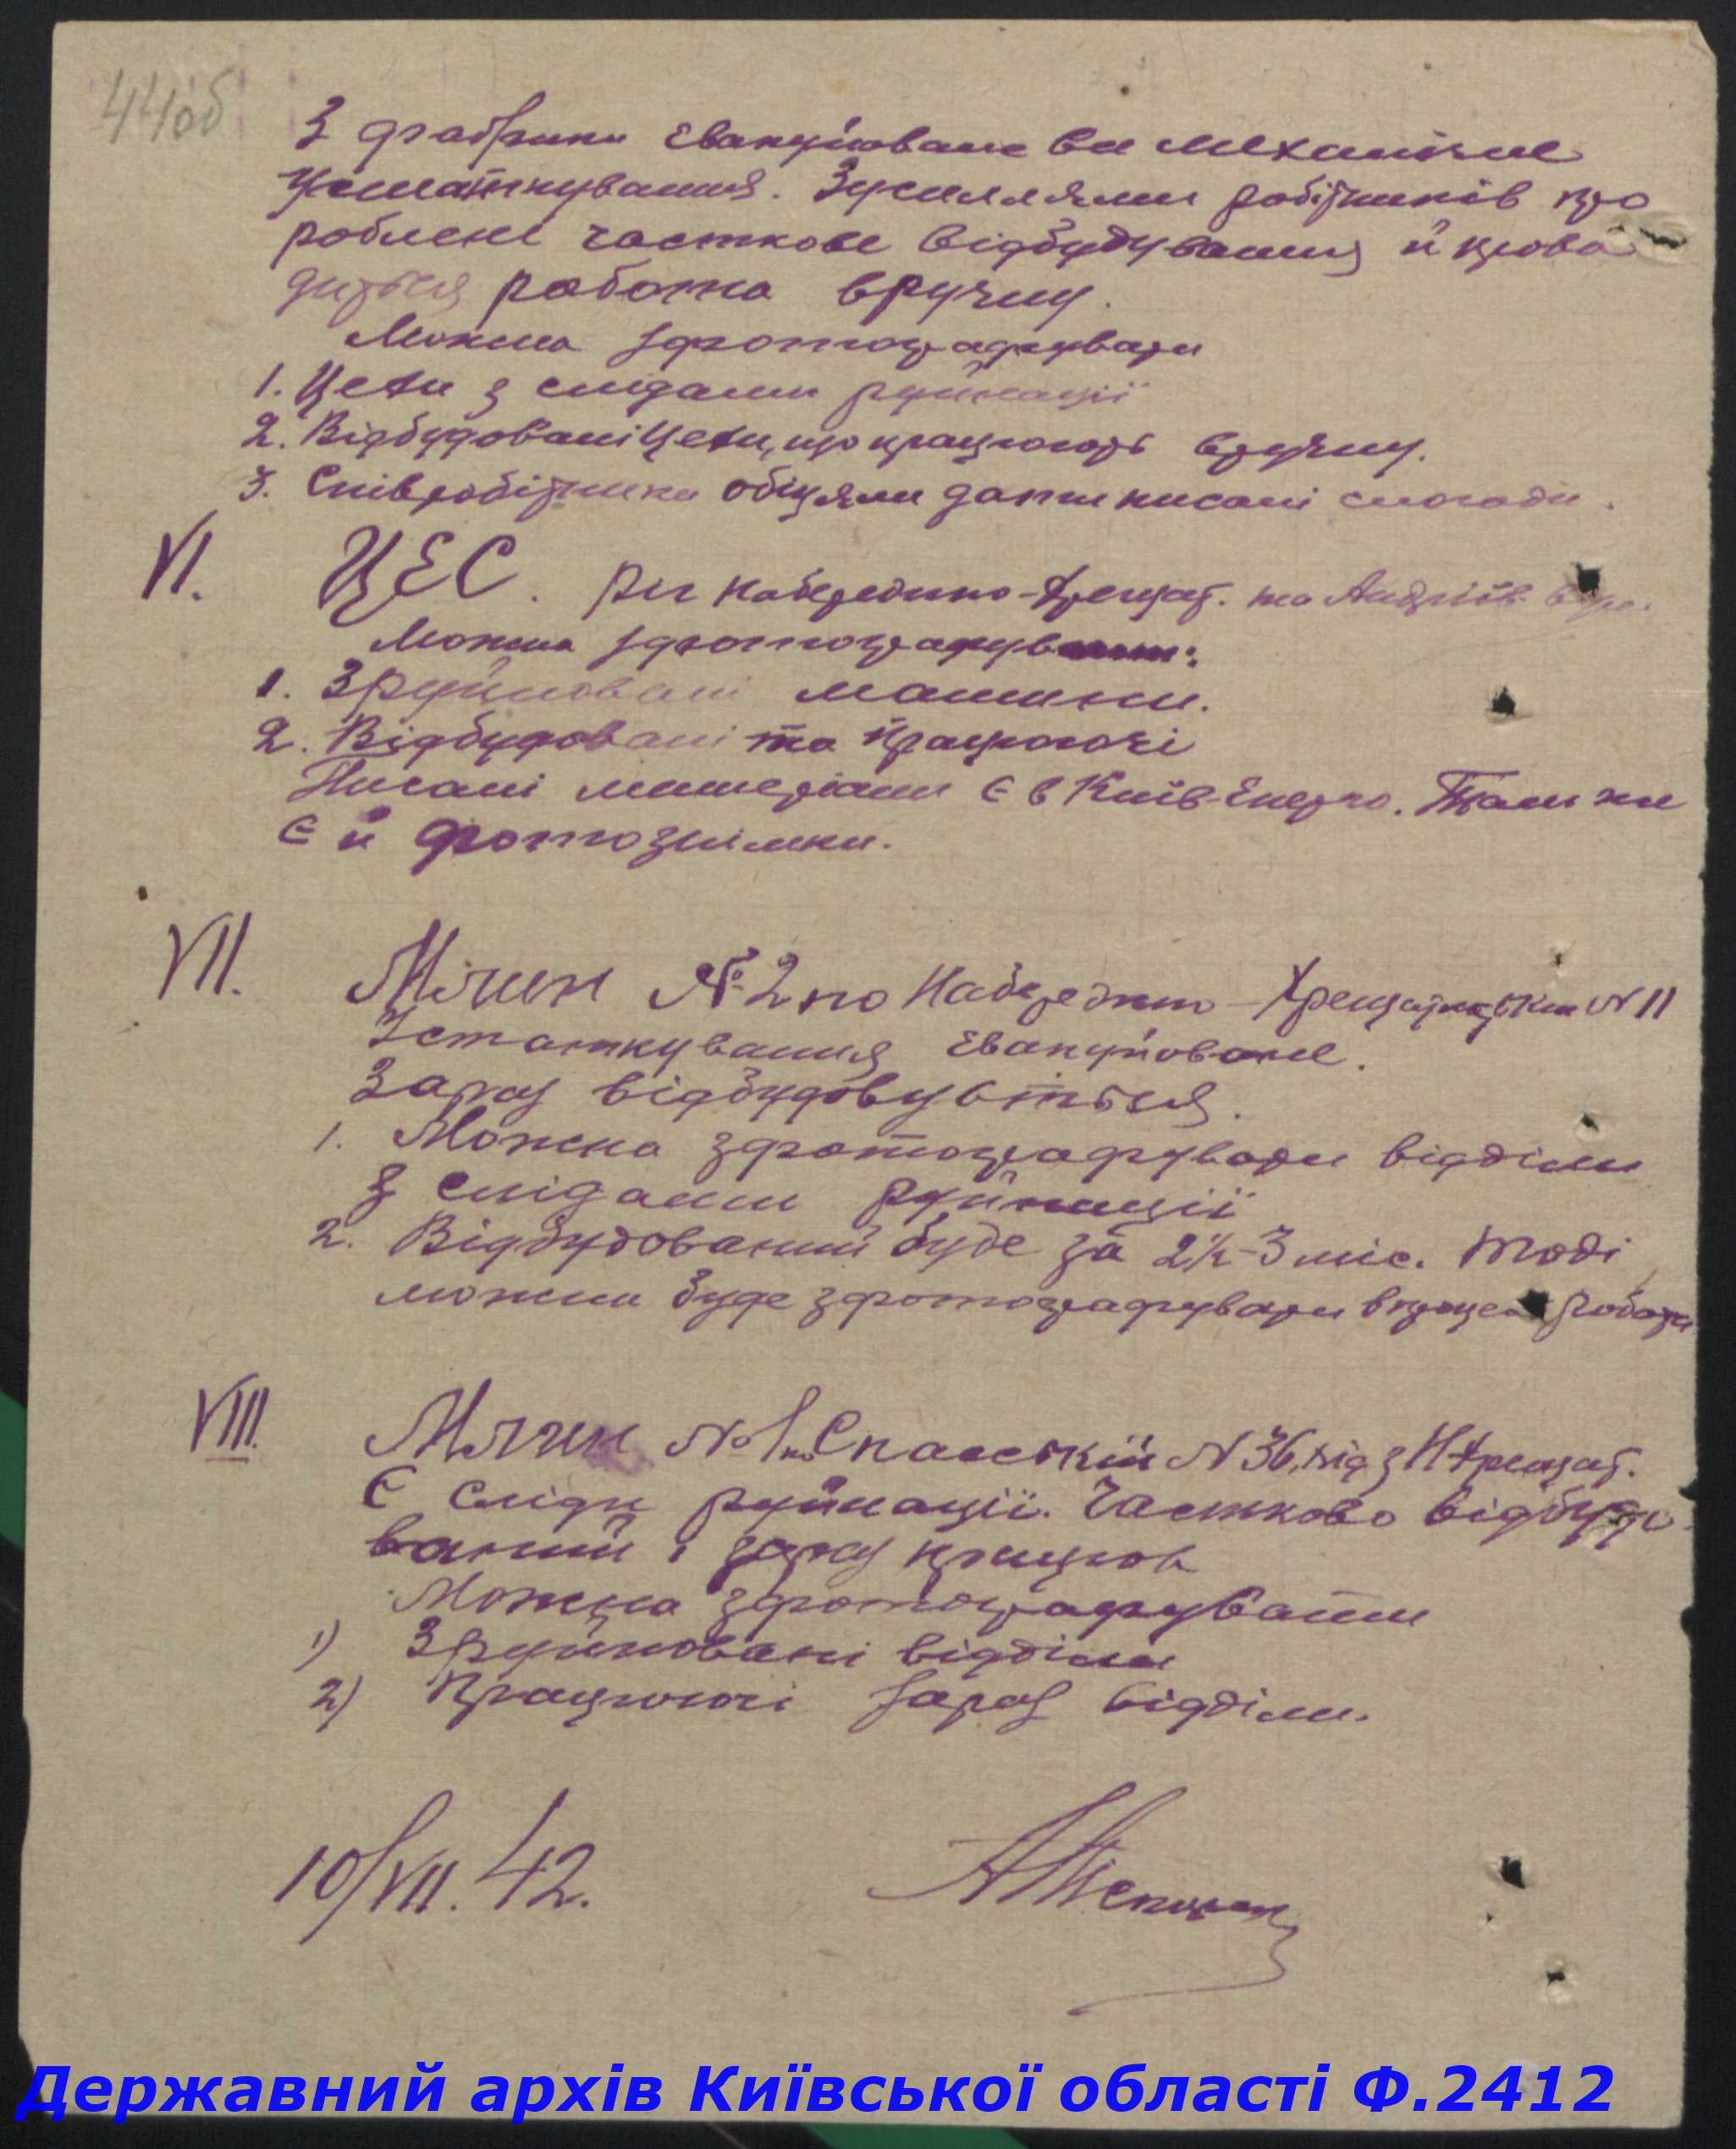 44об
З фабрики евакуйоване все механічне
устаткування. Зусиллями робітників про
роблене часткове відбудування й прова
диться работа вручну.
Можна зфотографувати
1. Цехи з слідами руйнації
2. Відбудовані цехи, що працюють вручну.
3. Співробітники обіцяли дати писані спогади.
VI. ЦЕС. ріг Набережно-Хрещат. та Андріїв.
Можна зфотографувати:
1. Зруйновані машини.
2. Відбудовані та працюючі
Писані матеріали є в Київ-Енерго. Там же
є й фотознімки.
VII. Млин № 2 по Набережно-Хрещатицькій N 11
Устаткування евакуйоване.
Зараз відбудовується.
1. Можна зфотографувати відділи
з слідами руйнації
2. Відбудований буде за 2½-3 міс. Тоді
можна буде зфотографувати в процесі роботи
VIII. Млин № 1 по Спаській N 36, ріг з Н Хрещат.
Є сліди руйнації. Частково відбудо
ваний і зараз працює
Можна зфотографувати
1) Зруйновані відділи
2) Працюючі зараз відділи.
10/VII. 42.
Державний архів Київської області Ф.2412